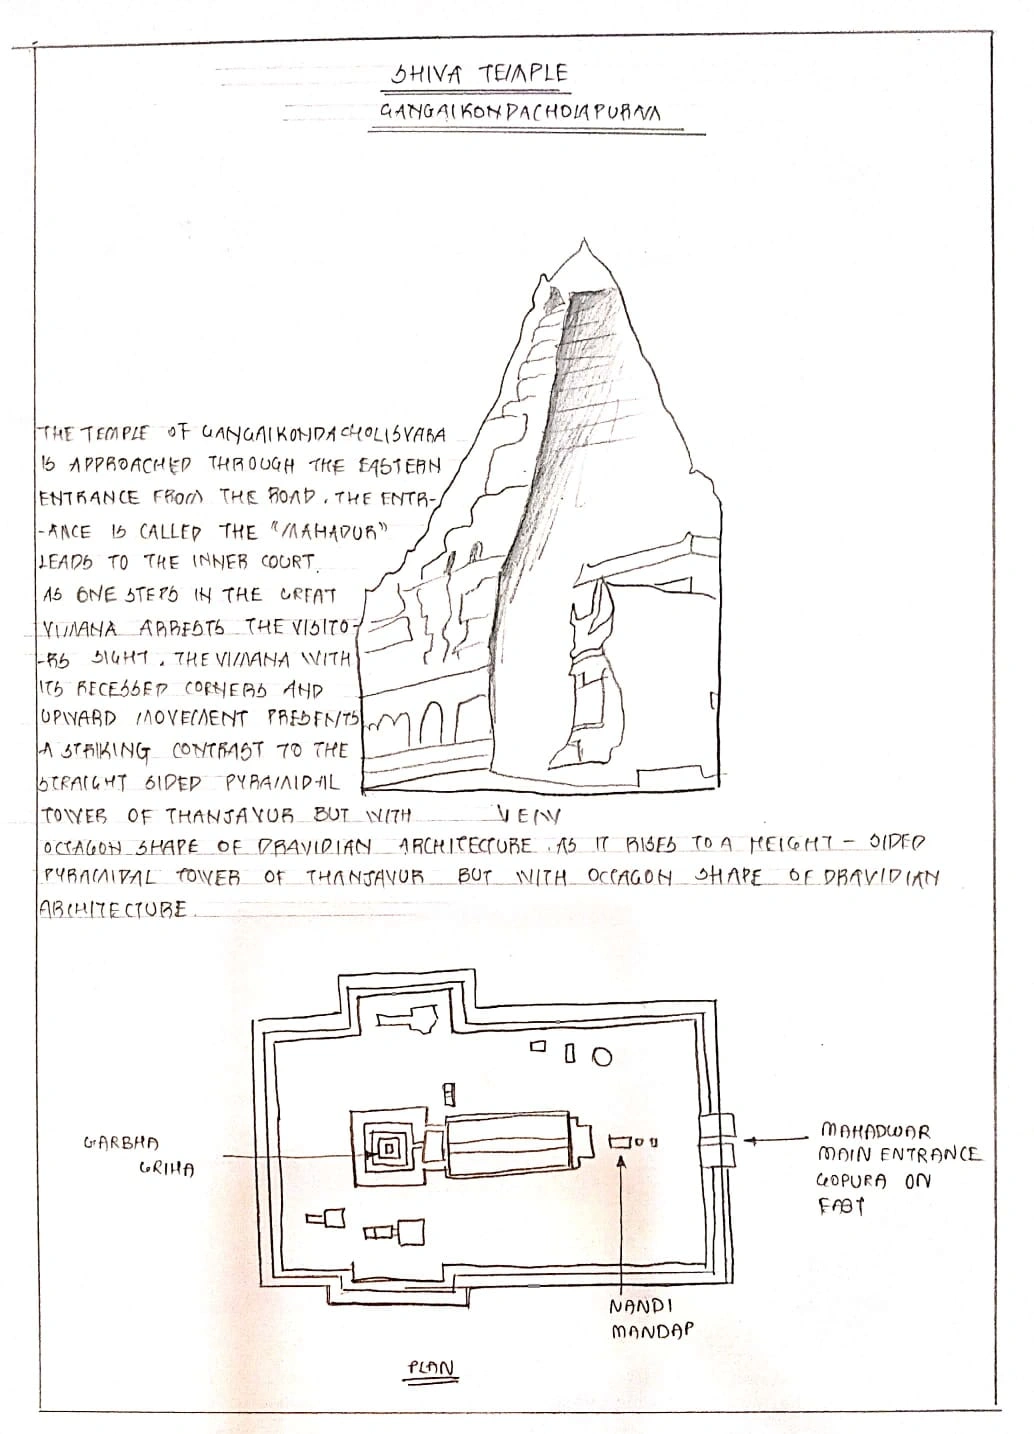 SHIVA TEMPLE
GANGAIKONDACHOLAPURNA
THE TEMPLE OF GANGAIKONDACHOLISVARA
IS APPROACHED THROUGH THE EASTERN
ENTRANCE FROM THE ROAD. THE ENTR-
-ANCE IS CALLED THE "MAHADUR"
LEADS TO THE INNER COURT.
AS ONE STEPS IN THE GREAT
VIMANA ARRESTS THE VISITO-
-RS SIGHT. THE VIMANA WITH
ITS RECESSED CORNERS AND
UPWARD MOVEMENT PRESENTS
A STRIKING CONTRAST TO THE
STRAIGHT SIDED PYRAMIDAL
TOWER OF THANJAVUR BUT WITH
VEIW
OCTAGON SHAPE OF DRAVIDIAN ARCHITECTURE. AS IT RISES TO A HEIGHT - SIDED
PYRAMIDAL TOWER OF THANJAVUR BUT WITH OCCAGON SHAPE OF DRAVIDIAN
ARCHITECTURE.
GARBHA
GRIHA
MAHADWAR
MAIN ENTRANCE
GOPURA ON
EAST
NANDI
MANDAP
PLAN